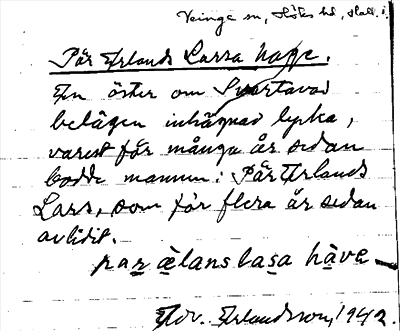 Veinge sn, Höks hd, Hall. i.
Pär Erlands Larsa hage.
En öster om Svartavad
belägen inhägnad lycka,
varest för många år sedan
bodde mannen: Pär Erlands
Lars, som för flera år sedan
avlidit.
par ælans lasa have
Edv. Erlandsson, 1942.